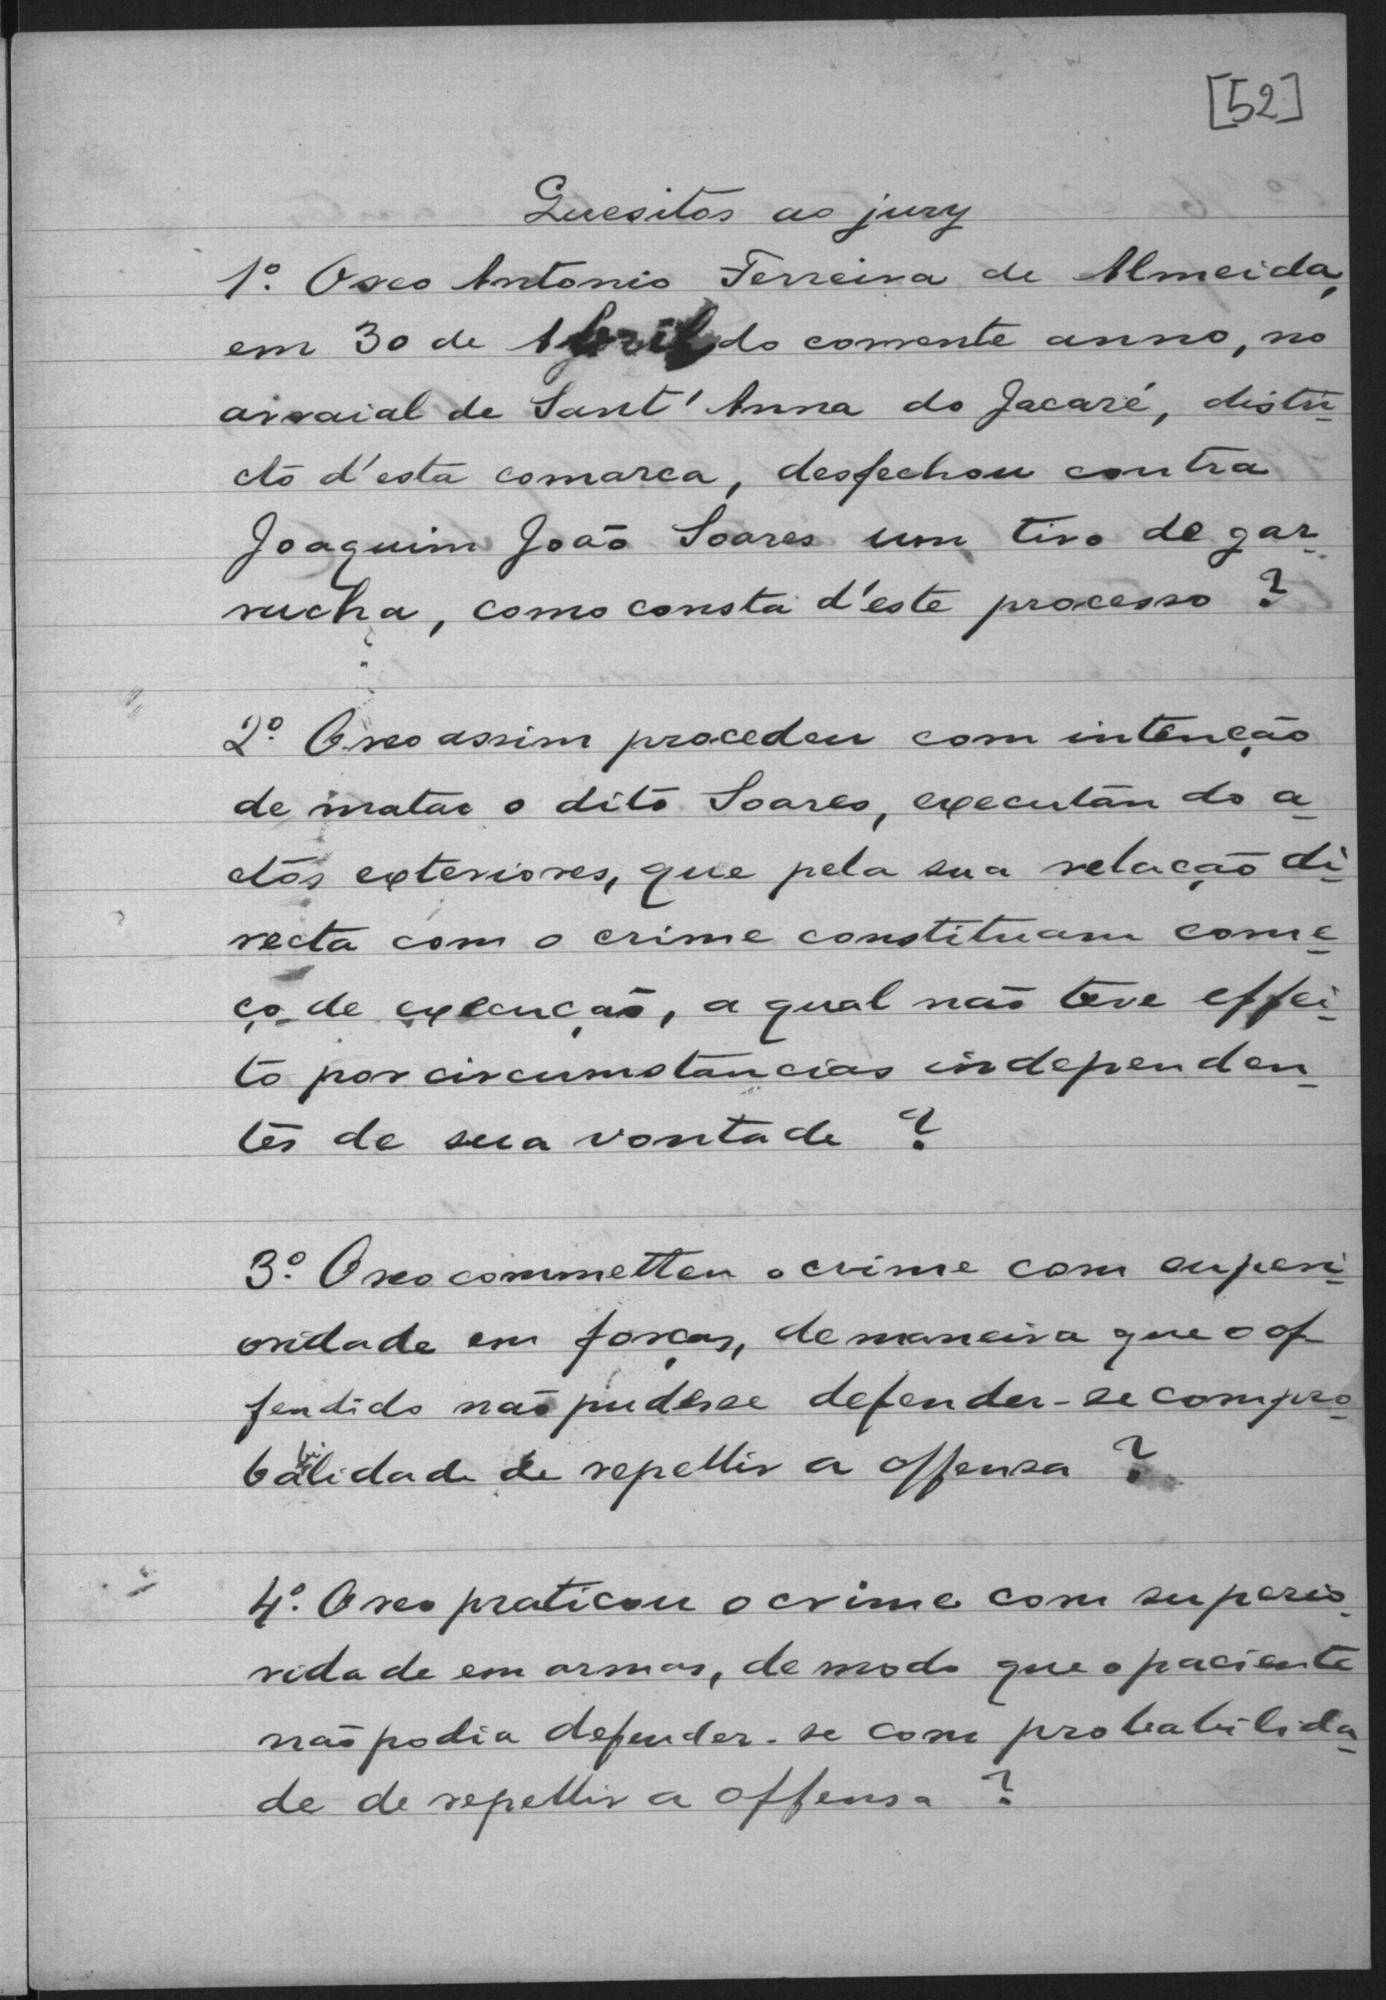 [52]
Quesitos ao jury
1º. O reo Antonio Ferreira de Almeida,
em 30 de Abril do corrente anno, no
arraial de Sant'Anna do Jacaré, distri-
cto d'esta comarca, desfechou contra
Joaquim João Soares um tiro de gar-
rucha, como consta d'este processo ?
2º. O reo assim procedeu com intenção
de matar o dito Soares, executando a-
ctos exteriores, que pela sua relação di-
recta com o crime constituam come-
ço de execução, a qual não teve effei-
to por circumstancias independen-
tes de sua vontade ?
3º. O reo commetteu o crime com superi-
oridade em forças, de maneira que o of
fendido não pudesse defender-se com pro-
babilidade de repellir a offensa ?
4º. O reo praticou o crime com superio-
ridade em armas, de modo que o paciente
não podia defender-se com probabilida-
de de repellir a offensa ?